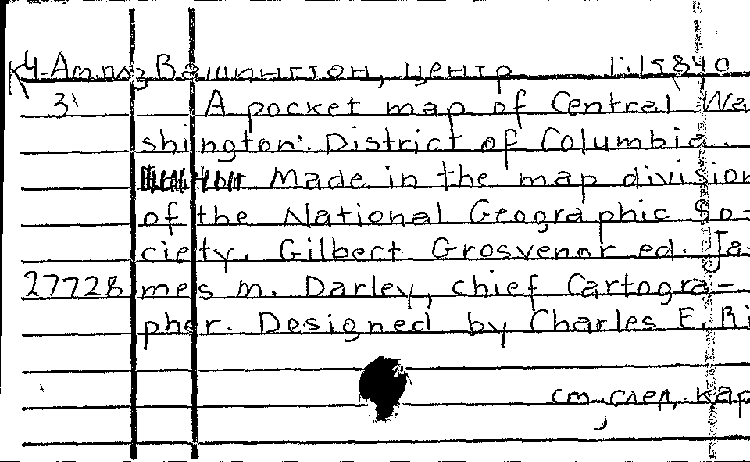 К4-Ам.п.з Вашингтон, центр 1:15840
3
A pocket map of Central Wa
shington. District of Columbia.
Made in the map division
of the National Geographic So-
ciety. Gilbert Grosvenor ed. Ja-
27728 mes m. Darley, chief Cartogra-
pher. Designed by Charles E. Ri
см. след. кар